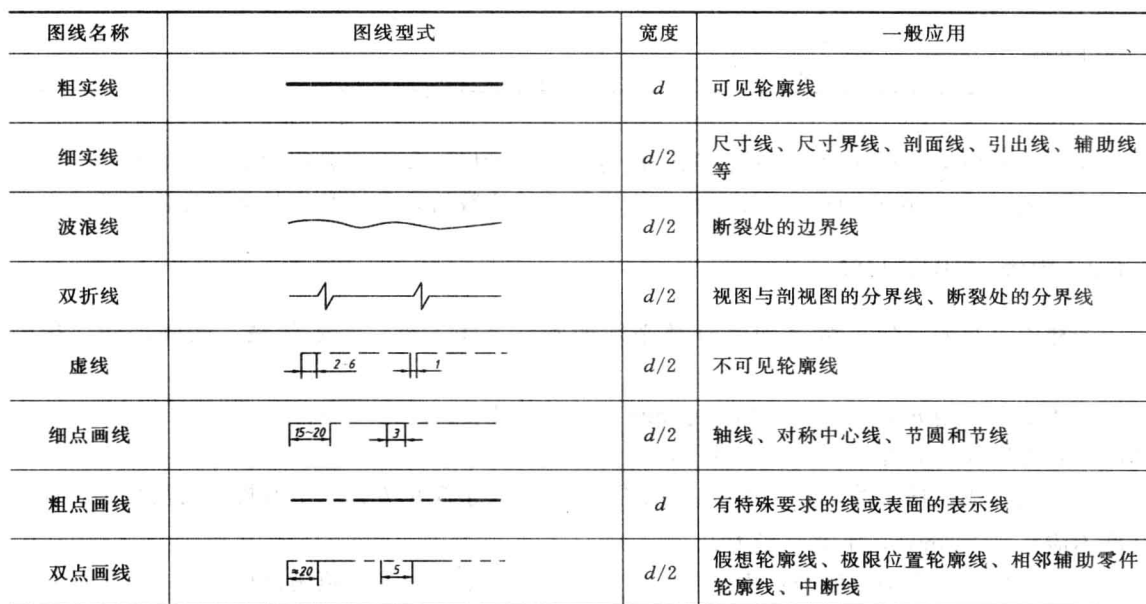 图线名称 图线型式 宽度 一般应用
粗实线 d 可见轮廓线
细实线 d/2 尺寸线、尺寸界线、剖面线、引出线、辅助线
等
波浪线 d/2 断裂处的边界线
双折线 d/2 视图与剖视图的分界线、断裂处的分界线
虚线 2-6 1 d/2 不可见轮廓线
细点画线 15~20 3 d/2 轴线、对称中心线、节圆和节线
粗点画线 d 有特殊要求的线或表面的表示线
双点画线 ≈20 5 d/2 假想轮廓线、极限位置轮廓线、相邻辅助零件
轮廓线、中断线